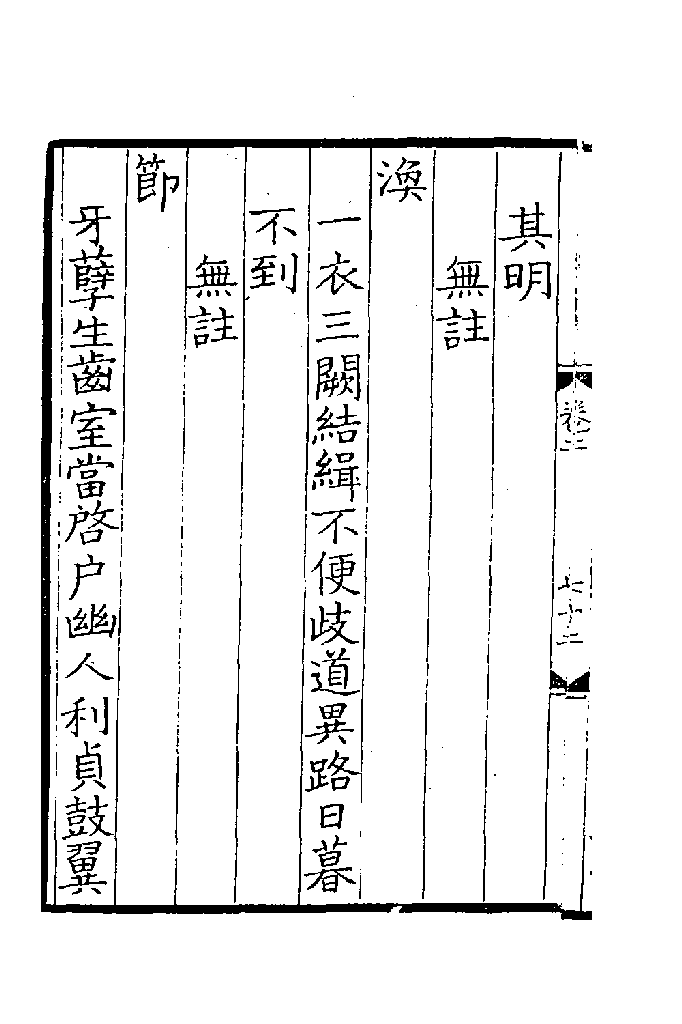 其明
無註
渙
一衣三闕結緝不便歧道異路日暮
不到
無註
節
牙孽生齒室當啓户幽人利貞鼓翼
卷二
七十二